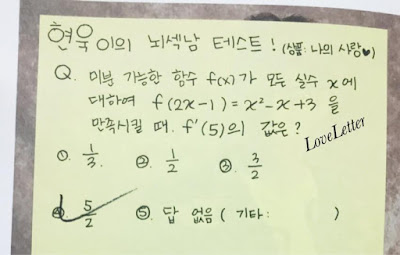 현욱이의 뇌섹남 테스트! (상품: 나의 사랑♥)
Q. 미분 가능한 함수 f(x)가 모든 실수 x에
대하여 f(2x-1)=x²-x+3 을
만족시킬 때. f'(5)의 값은?
LoveLetter
① 1/3. ② 1/2 ③ 3/2
④ 5/2 ⑤ 답 없음 ( 기타: )